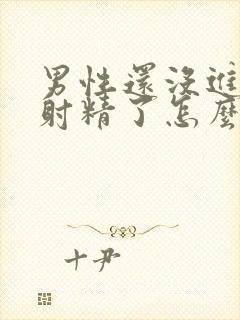 男性還沒進
射精了怎麼
十尹